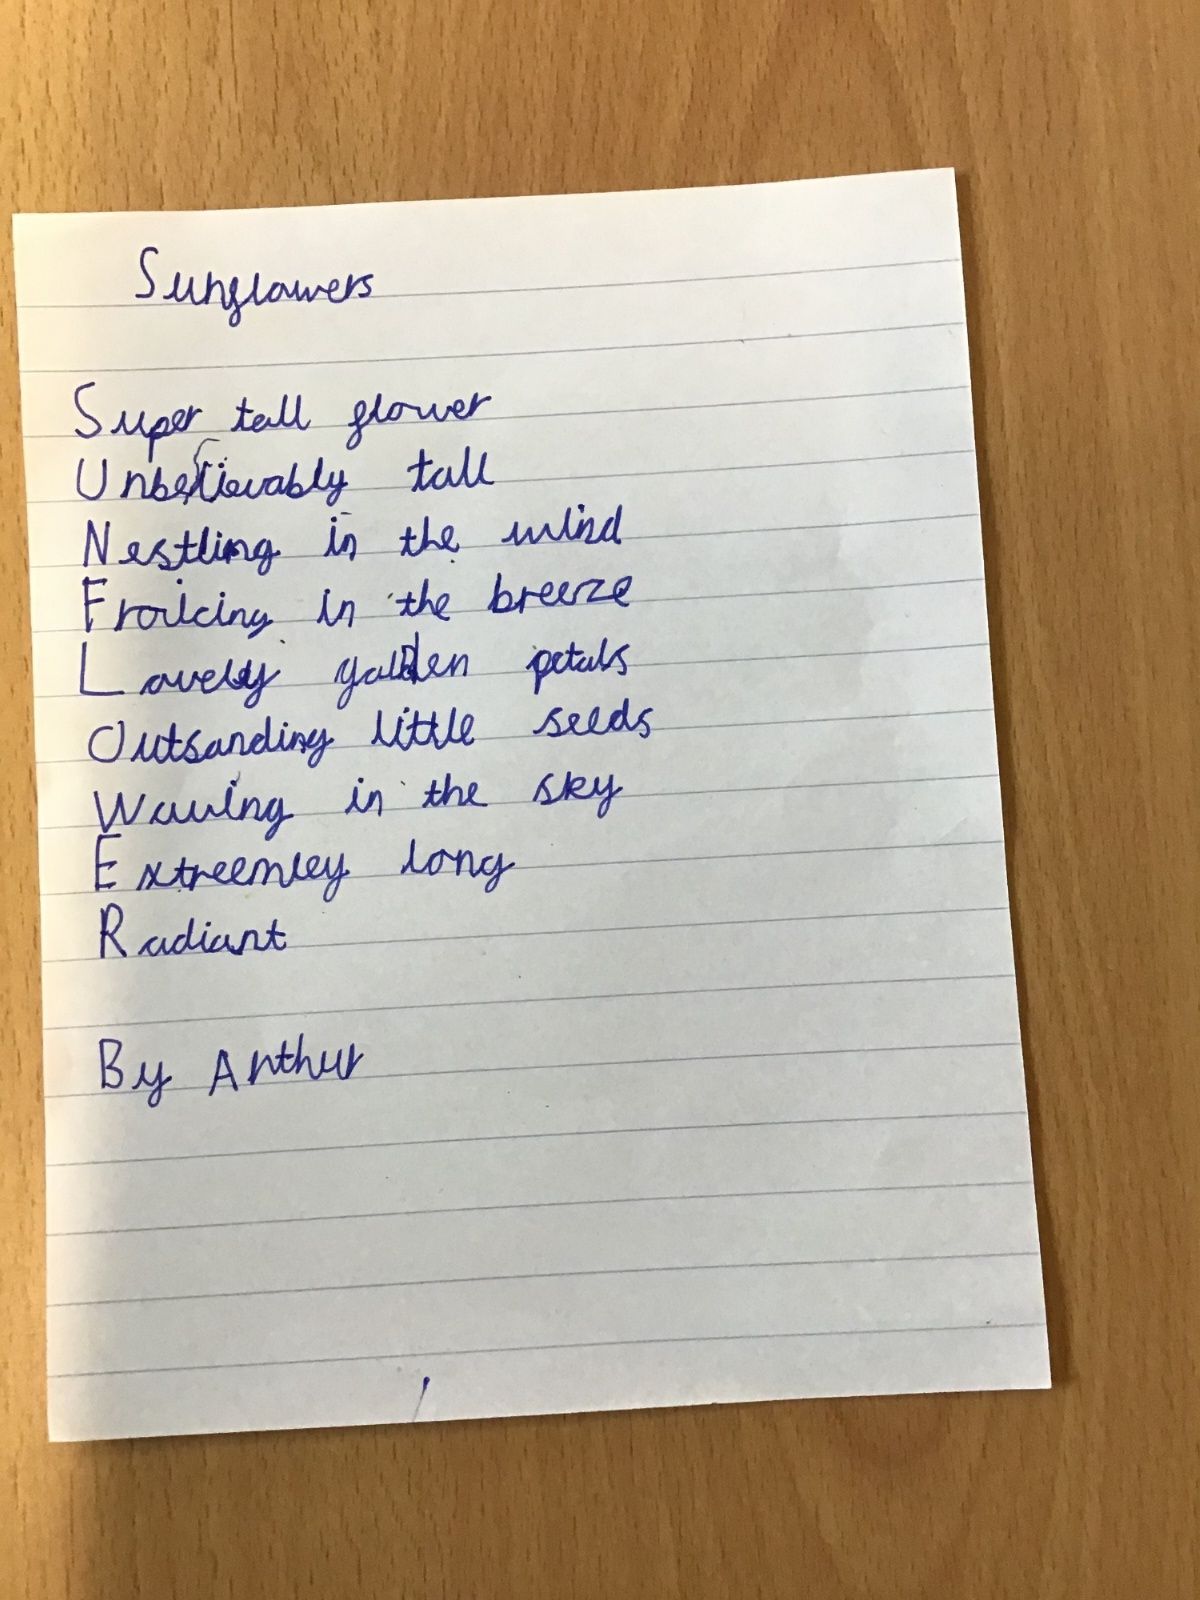 Sunflowers
Super tall flower
Unbelievably tall
Nestling in the wind
Frolicing in the breeze
Lovely golden petals
Outsanding little seeds
Waving in the sky
Extreemley long
Radiant
By Arthur